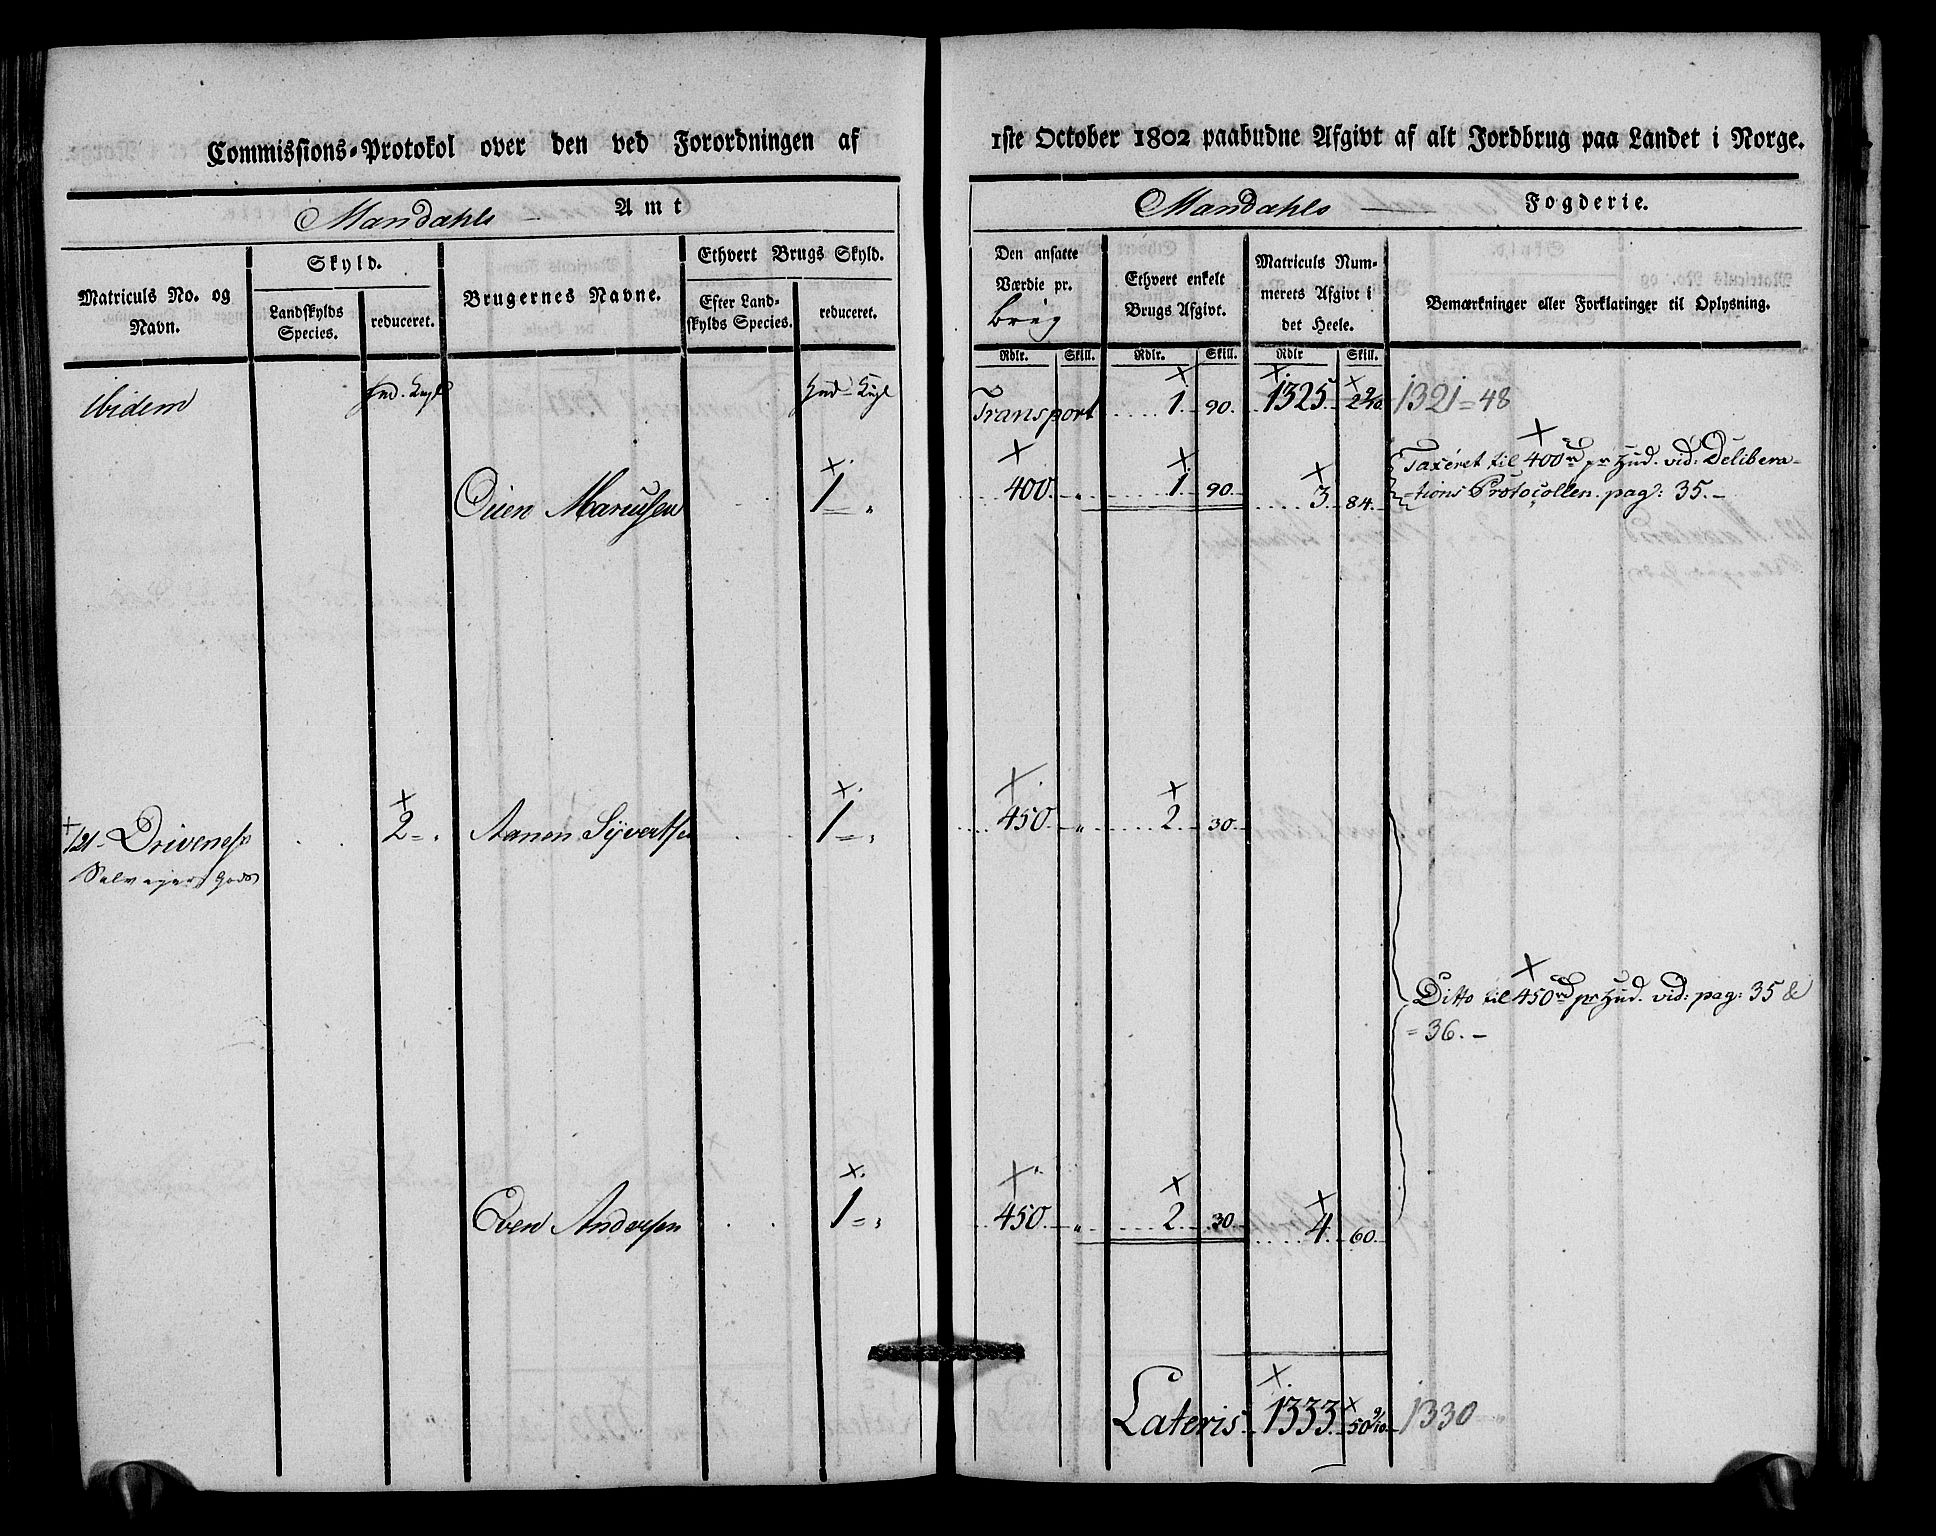 Commissions-Protokol over den ved Forordningen af
Mandahls Amt
Matriculs No. og Navn.
Skyld.
Landskylds Species.
reduceret.
Brugernes Navne.
Ethvert Brugs Skyld.
Efter Landskylds Species.
reduceret.
ibidem
Hud. Kngl
Hud Kngl
1 = "
121 - Drivenes
Selveyer Gods
2 = "
Aanen Syvertsen
1 = "
Even Andersen
1 = "
1ste October 1802 paabudne Afgivt af alt Jordbrug paa Landet i Norge.
Mandahls Fogderie.
Den ansatte Værdie pr.
Brug
Ethvert enkelt Brugs Afgivt.
Matriculs Nummerets Afgivt i det Heele.
Bemærkninger eller Forklaringer til Oplysning.
Rdlr. Skill. Rdlr. Skill. Rdlr Skill.
Transport 1. 90. 1325. 2 9/10 1321 = 48
400. " 1. 90. 3. 84.
Taxeret til 400 rd pr Hud. vid: Delibera-
tions Protocollen. pag: 35. -
450. " 2. 30.
Ditto til 450 rd pr Hud. vid: pag: 35 &
= 36. -
450. " 2. 30. 4. 60.
Lateris. 1333. 50 9/10 1330